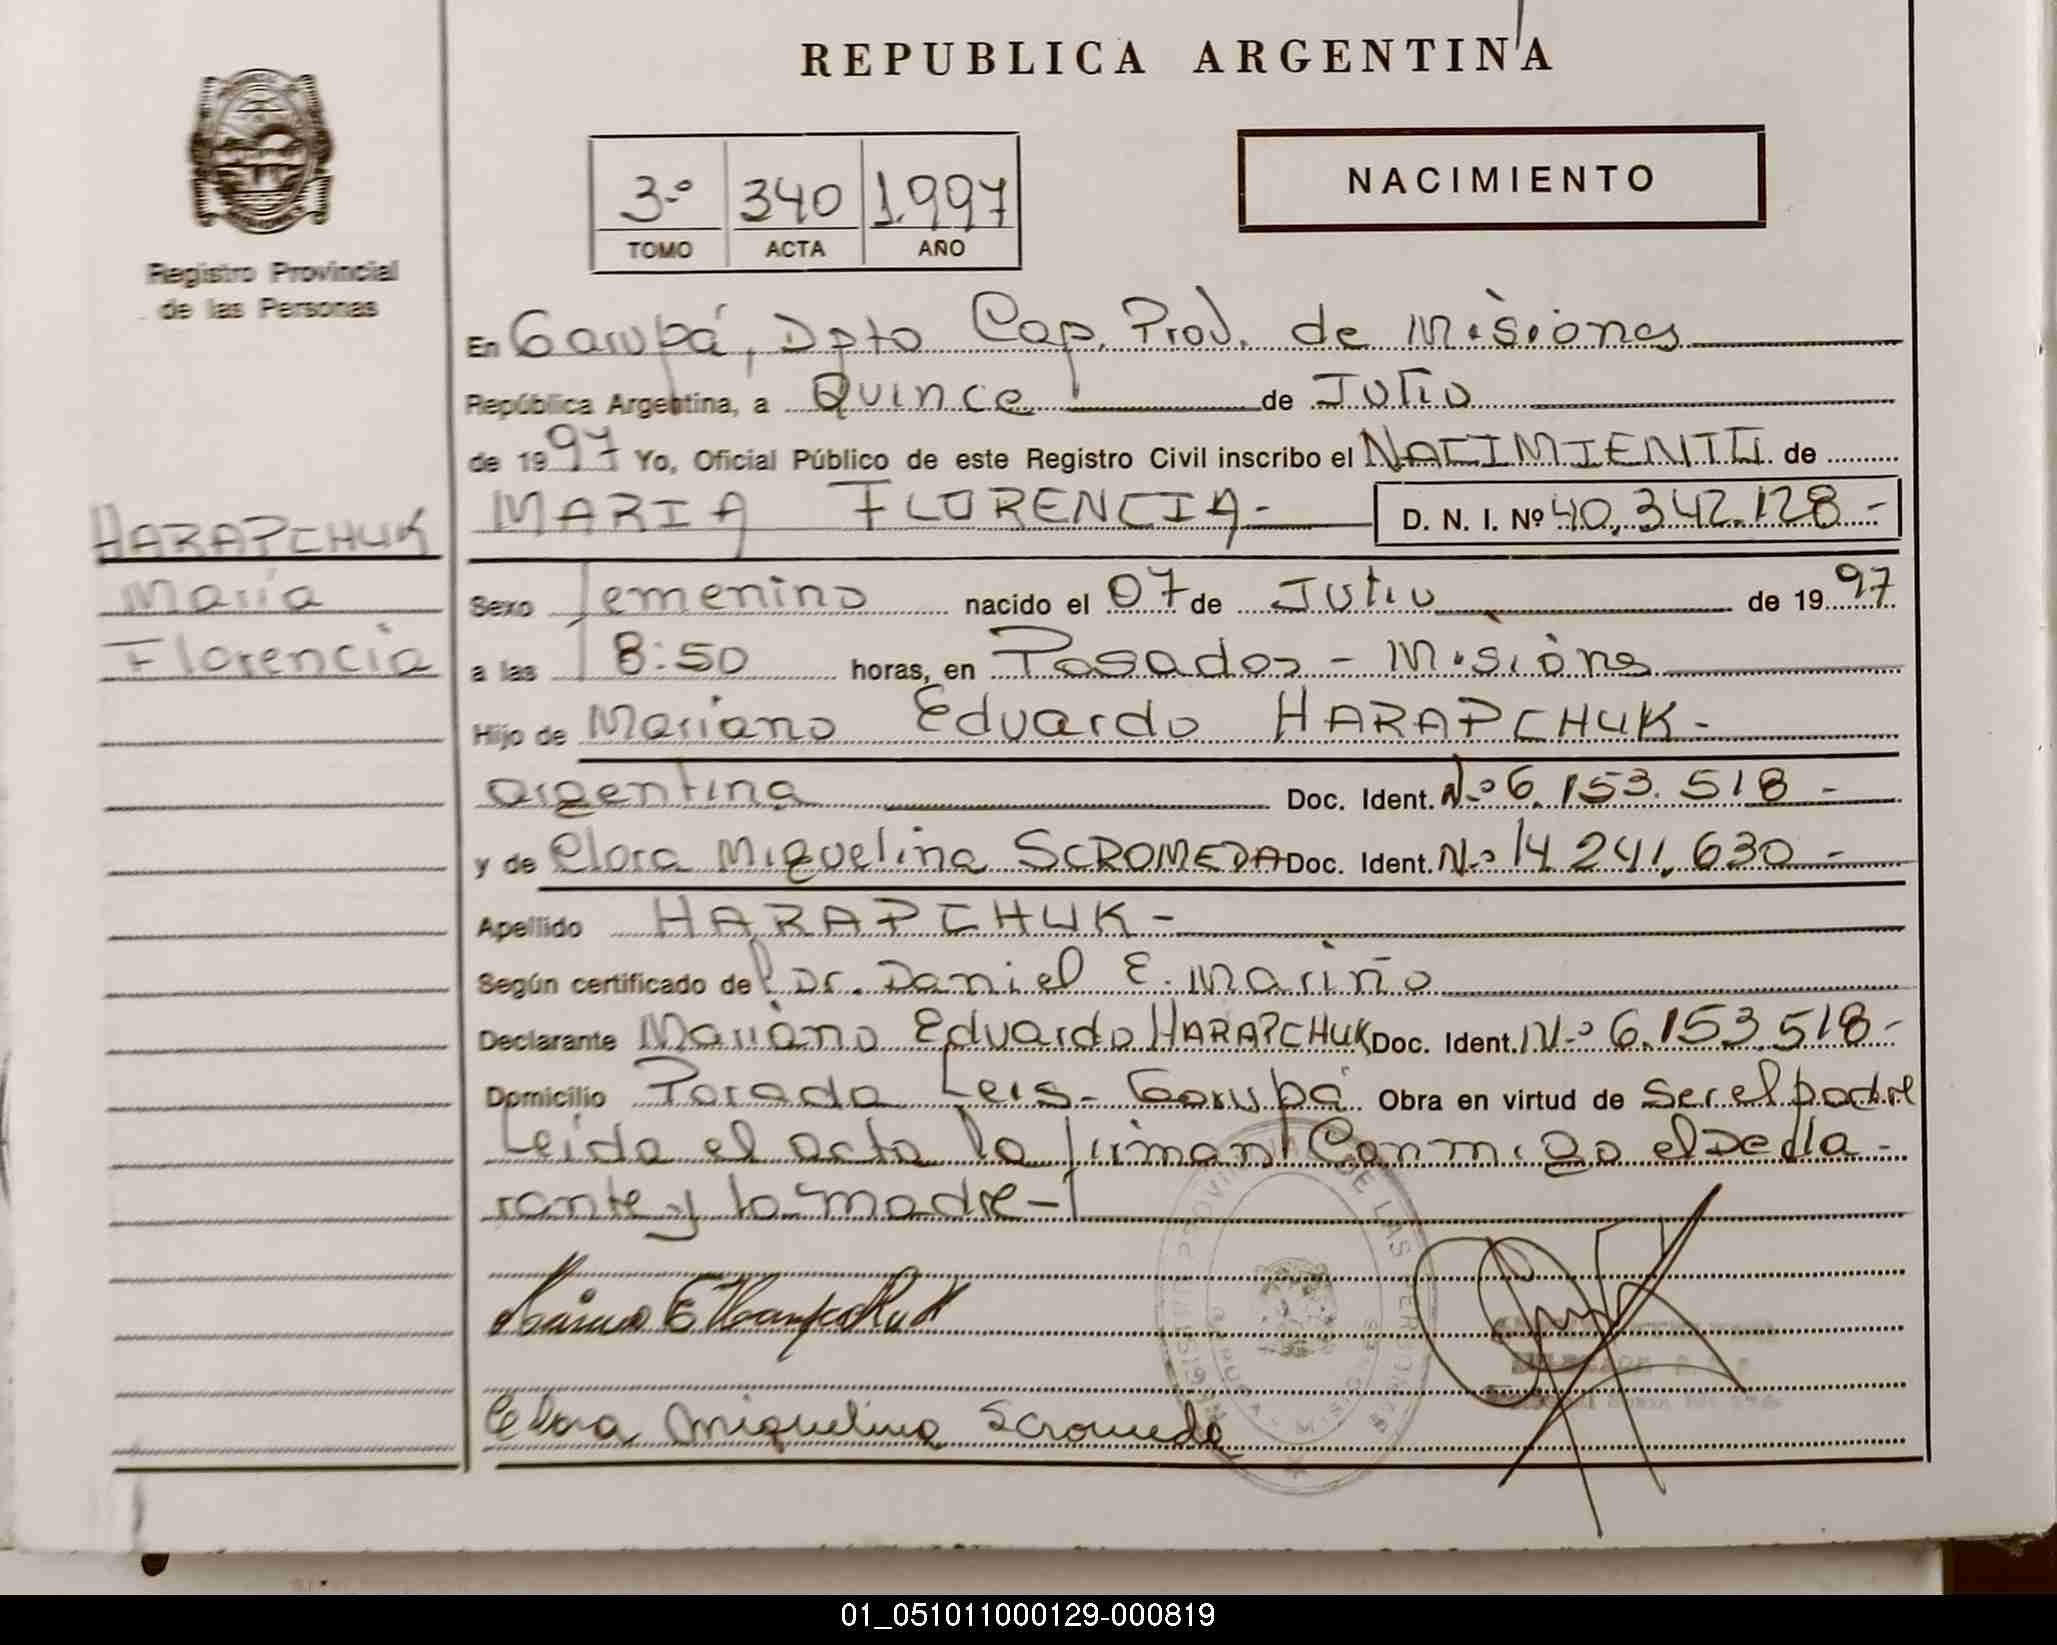 REPUBLICA ARGENTINA
NACIMIENTO
3.º 340 1.997
TOMO ACTA AÑO
Registro Provincial
de las Personas
En Garupá, Dpto Cap. Prov. de Misiones
República Argentina, a Quince de Julio
de 1997 Yo, Oficial Público de este Registro Civil inscribo el NACIMIENTO de
MARIA FLORENCIA - D. N. I. Nº 40.342.128.-
HARAPCHUK
María
Florencia
Sexo femenino nacido el 07 de Julio de 1997
a las 8:50 horas, en Posadas - Misiones
Hijo de Mariano Eduardo HARAPCHUK -
argentina Doc. Ident. N.º 6.153.518 -
y de Clara Miguelina SCROMEDA Doc. Ident. N.º 14.241.630 -
Apellido HARAPCHUK -
Según certificado de Dr. Daniel E. Mariño
Declarante Mariano Eduardo HARAPCHUK Doc. Ident. N.º 6.153.518 -
Domicilio Parada Leis - Garupá Obra en virtud de ser el padre
Leida el acta la firman Conmigo el Decla-
rante y la madre -
Mariano E Harapchuk
Clara Miguelina Scromeda
01_051011000129-000819